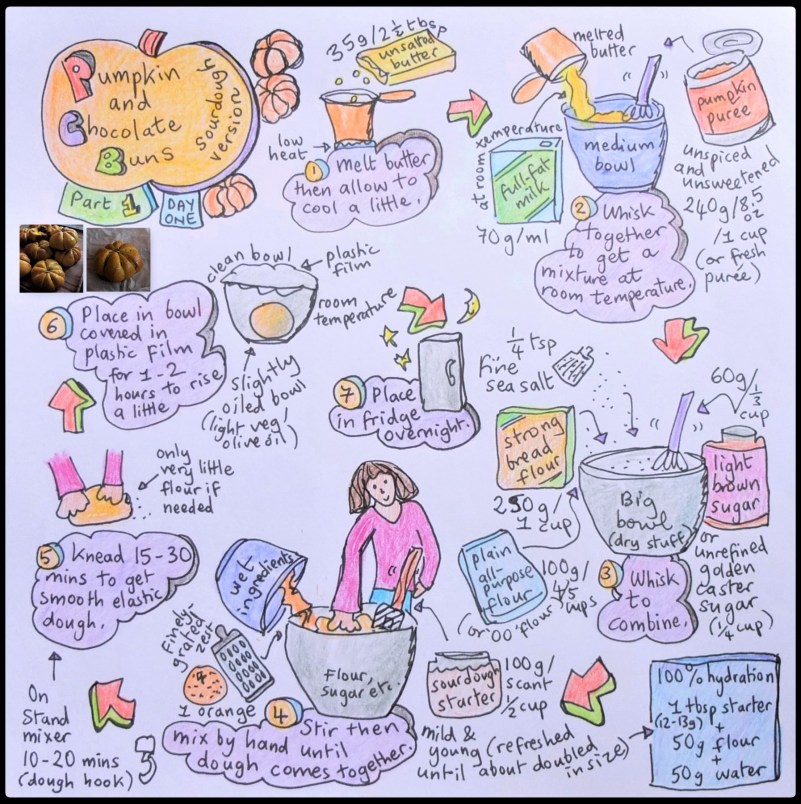 Pumpkin
and
Chocolate
Buns
sourdough
version
Part 1
DAY
ONE
35g/2½ tbsp
unsalted
butter
low
heat
1 melt butter
then allow to
cool a little.
melted
butter
at room temperature
full-fat
milk
70g/ml
medium
bowl
pumpkin
puree
unspiced
and
unsweetened
240g/8.5
oz
/1 cup
(or fresh
purée)
2 Whisk
together
to get a
mixture at
room temperature.
¼ tsp
fine
sea salt
60g/⅓
cup
strong
bread
flour
250g/
1 cup
Big
bowl
(dry stuff)
light
brown
sugar
or
unrefined
golden
caster
sugar
(¼ cup)
plain
all-
purpose
flour
100g/
4/5
cups
(or '00' flour)
3 Whisk
to
combine.
wet
ingredients
finely-
grated
zest
1 orange
Flour,
sugar etc.
sourdough
starter
100g/
scant
½ cup
mild &
young (refreshed
until about doubled
in size)
100% hydration
1 tbsp starter
(12-13g)
+
50g flour
+
50g water
4 Stir then
mix by hand until
dough comes together.
only
very little
flour if
needed
5 Knead 15-30
mins to get
smooth elastic
dough.
On
Stand
mixer
10-20 mins
(dough hook)
6 Place in bowl
covered in
plastic film
for 1-2
hours to rise
a little
clean bowl
plastic
film
room
temperature
Slightly
oiled bowl
(light veg/
olive oil)
7 Place
in fridge
overnight.